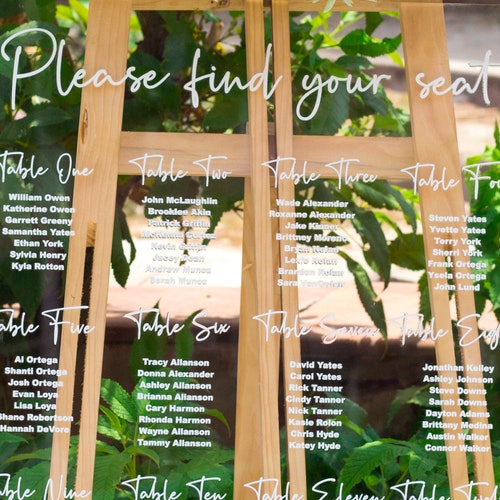 Please find your seat
Table One
William Owen
Katherine Owen
Garrett Greeny
Samantha Yates
Ethan York
Sylvia Henry
Kyla Rotten
Table Two
John McLaughlin
Brooklen Akin
Patrick Griffin
McKenna
Kevin
Jacey Sean
Andrew Munoz
Sarah Munoz
Table Three
Wade Alexander
Roxanne Alexander
Jake Kinney
Brittney Moreno
Brian Nolan
Lexie Nolan
Branden Nolan
Sara VanOrden
Table Fo
Steven Yates
Yvette Yates
Terry York
Sherri York
Frank Ortega
Ysola Ortega
John Lund
Table Five
Al Ortega
Shanti Ortega
Josh Ortega
Evan Loya
Lisa Loya
Shane Robertson
Hannah DeVore
Table Six
Tracy Allanson
Donna Alexander
Ashley Allanson
Brianna Allanson
Cary Harmon
Rhonda Harmon
Wayne Allanson
Tammy Allanson
Table Seven
David Yates
Carol Yates
Rick Tanner
Cindy Tanner
Nick Tanner
Kasie Rolon
Chris Hyde
Katey Hyde
Table Eigh
Jonathan Kelley
Ashley Johnson
Steve Downs
Sarah Downs
Dayton Adams
Brittany Medina
Austin Walker
Connor Walker
Table Nine
Table Ten
Table Eleven
Table Tw